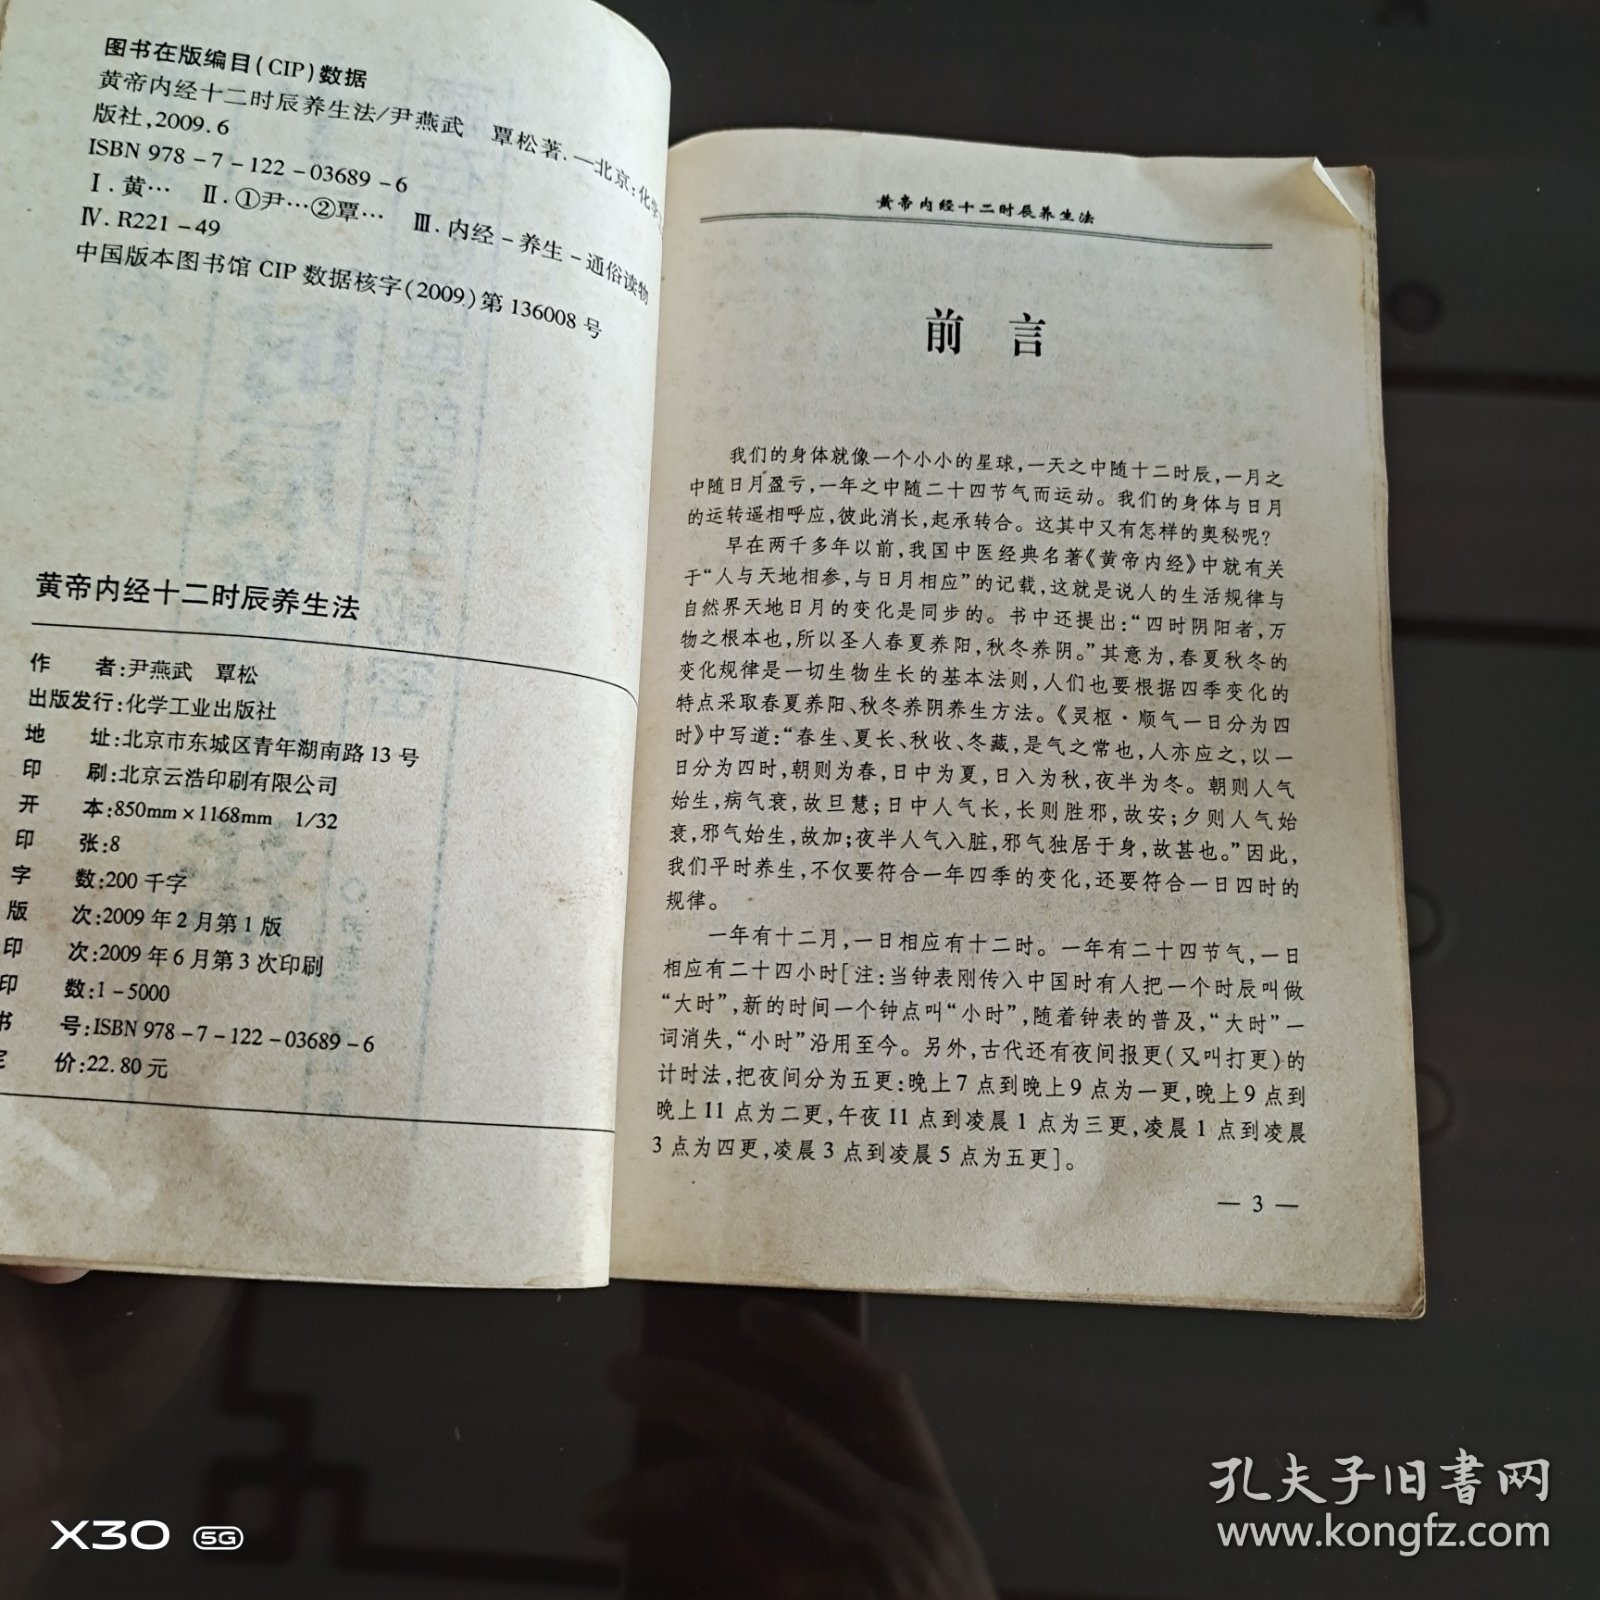 图书在版编目(CIP)数据
黄帝内经十二时辰养生法/尹燕武 覃松著.—北京:化学
版社,2009.6
ISBN 978-7-122-03689-6
Ⅰ.黄… Ⅱ.①尹…②覃… Ⅲ.内经-养生-通俗读物
Ⅳ.R221-49
中国版本图书馆 CIP 数据核字(2009.)第 136008 号
黄帝内经十二时辰养生法
作 者:尹燕武 覃松
出版发行:化学工业出版社
地 址:北京市东城区青年湖南路 13 号
印 刷:北京云浩印刷有限公司
开 本:850mm×1168mm 1/32
印 张:8
字 数:200 千字
版 次:2009 年 2 月第 1 版
印 次:2009 年 6 月第 3 次印刷
印 数:1-5000
书 号:ISBN 978-7-122-03689-6
定 价:22.80 元
黄帝内经十二时辰养生法
前 言
我们的身体就像一个小小的星球,一天之中随十二时辰,一月之
中随日月盈亏,一年之中随二十四节气而运动。我们的身体与日月
的运转遥相呼应,彼此消长,起承转合。这其中又有怎样的奥秘呢?
早在两千多年以前,我国中医经典名著《黄帝内经》中就有关
于“人与天地相参,与日月相应”的记载,这就是说人的生活规律与
自然界天地日月的变化是同步的。书中还提出:“四时阴阳者,万
物之根本也,所以圣人春夏养阳,秋冬养阴。”其意为,春夏秋冬的
变化规律是一切生物生长的基本法则,人们也要根据四季变化的
特点采取春夏养阳、秋冬养阴养生方法。《灵枢·顺气一日分为四
时》中写道:“春生、夏长、秋收、冬藏,是气之常也,人亦应之,以一
日分为四时,朝则为春,日中为夏,日入为秋,夜半为冬。朝则人气
始生,病气衰,故旦慧;日中人气长,长则胜邪,故安;夕则人气始
衰,邪气始生,故加;夜半人气入脏,邪气独居于身,故甚也。”因此,
我们平时养生,不仅要符合一年四季的变化,还要符合一日四时的
规律。
一年有十二月,一日相应有十二时。一年有二十四节气,一日
相应有二十四小时[注:当钟表刚传入中国时有人把一个时辰叫做
“大时”,新的时间一个钟点叫“小时”,随着钟表的普及,“大时”一
词消失,“小时”沿用至今。另外,古代还有夜间报更(又叫打更)的
计时法,把夜间分为五更:晚上7点到晚上9点为一更,晚上9点到
晚上11点为二更,午夜11点到凌晨1点为三更,凌晨1点到凌晨
3点为四更,凌晨3点到凌晨5点为五更]。
— 3 —
X30 5G
孔夫子旧书网
www.kongfz.com